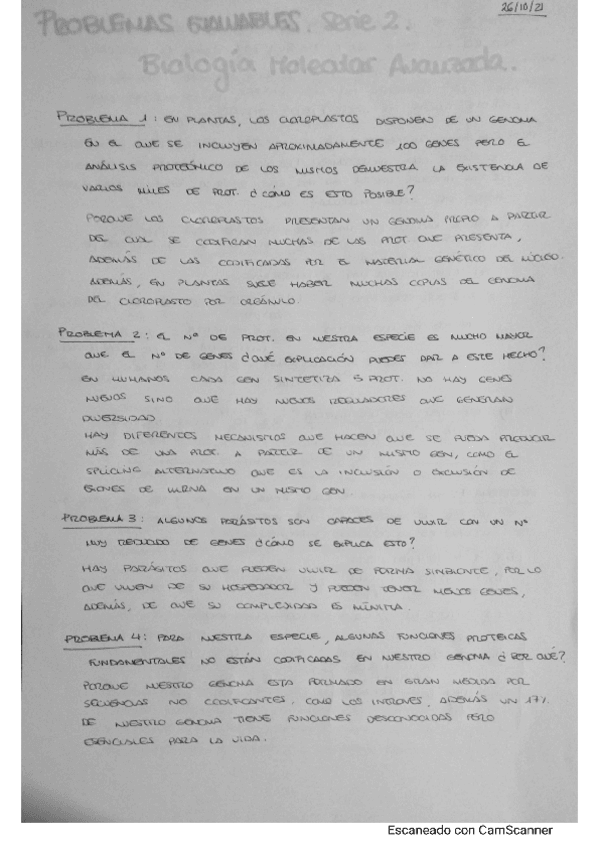 26/10/21
PROBLEMAS EVALUABLES. Serie 2.
Biología Molecular Avanzada.
PROBLEMA 1: EN PLANTAS, LOS CLOROPLASTOS DISPONEN DE UN GENOMA
EN EL QUE SE INCLUYEN APROXIMADAMENTE 100 GENES PERO EL
ANÁLISIS PROTEÓMICO DE LOS MISMOS DEMUESTRA LA EXISTENCIA DE
VARIOS MILES DE PROT. ¿CÓMO ES ESTO POSIBLE?
PORQUE LOS CLOROPLASTOS PRESENTAN UN GENOMA PROPIO A PARTIR
DEL CUAL SE CODIFICAN MUCHAS DE LAS PROT QUE PRESENTA,
ADEMÁS DE LAS CODIFICADAS POR EL MATERIAL GENÉTICO DEL NÚCLEO.
ADEMÁS, EN PLANTAS SUELE HABER MUCHAS COPIAS DEL GENOMA
DEL CLOROPLASTO POR ORGÁNULO.
PROBLEMA 2: EL Nº DE PROT. EN NUESTRA ESPECIE ES MUCHO MAYOR
QUE EL Nº DE GENES ¿QUÉ EXPLICACIÓN PUEDES DAR A ESTE HECHO?
EN HUMANOS CADA GEN SINTETIZA 5 PROT. NO HAY GENES
NUEVOS SINO QUE HAY NUEVOS REGULADORES QUE GENERAN
DIVERSIDAD.
HAY DIFERENTES MECANISMOS QUE HACEN QUE SE PUEDA PRODUCIR
MÁS DE UNA PROT. A PARTIR DE UN MISMO GEN, COMO EL
SPLICING ALTERNATIVO QUE ES LA INCLUSIÓN O EXCLUSIÓN DE
EXONES DE MRNA EN UN MISMO GEN.
PROBLEMA 3: ALGUNOS PARÁSITOS SON CAPACES DE VIVIR CON UN Nº
MUY REDUCIDO DE GENES ¿CÓMO SE EXPLICA ESTO?
HAY PARÁSITOS QUE PUEDEN VIVIR DE FORMA SIMBIONTE, POR LO
QUE VIVEN DE SU HOSPEDADOR Y PUEDEN TENER MENOS GENES,
ADEMÁS, DE QUE SU COMPLEJIDAD ES MÍNIMA.
PROBLEMA 4: PARA NUESTRA ESPECIE, ALGUNAS FUNCIONES PROTEICAS
FUNDAMENTALES NO ESTÁN CODIFICADAS EN NUESTRO GENOMA ¿POR QUÉ?
PORQUE NUESTRO GENOMA ESTÁ FORMADO EN GRAN MEDIDA POR
SECUENCIAS NO CODIFICANTES. COMO LOS INTRONES, ADEMÁS UN 17%
DE NUESTRO GENOMA TIENE FUNCIONES DESCONOCIDAS PERO
ESENCIALES PARA LA VIDA.
Escaneado con CamScanner